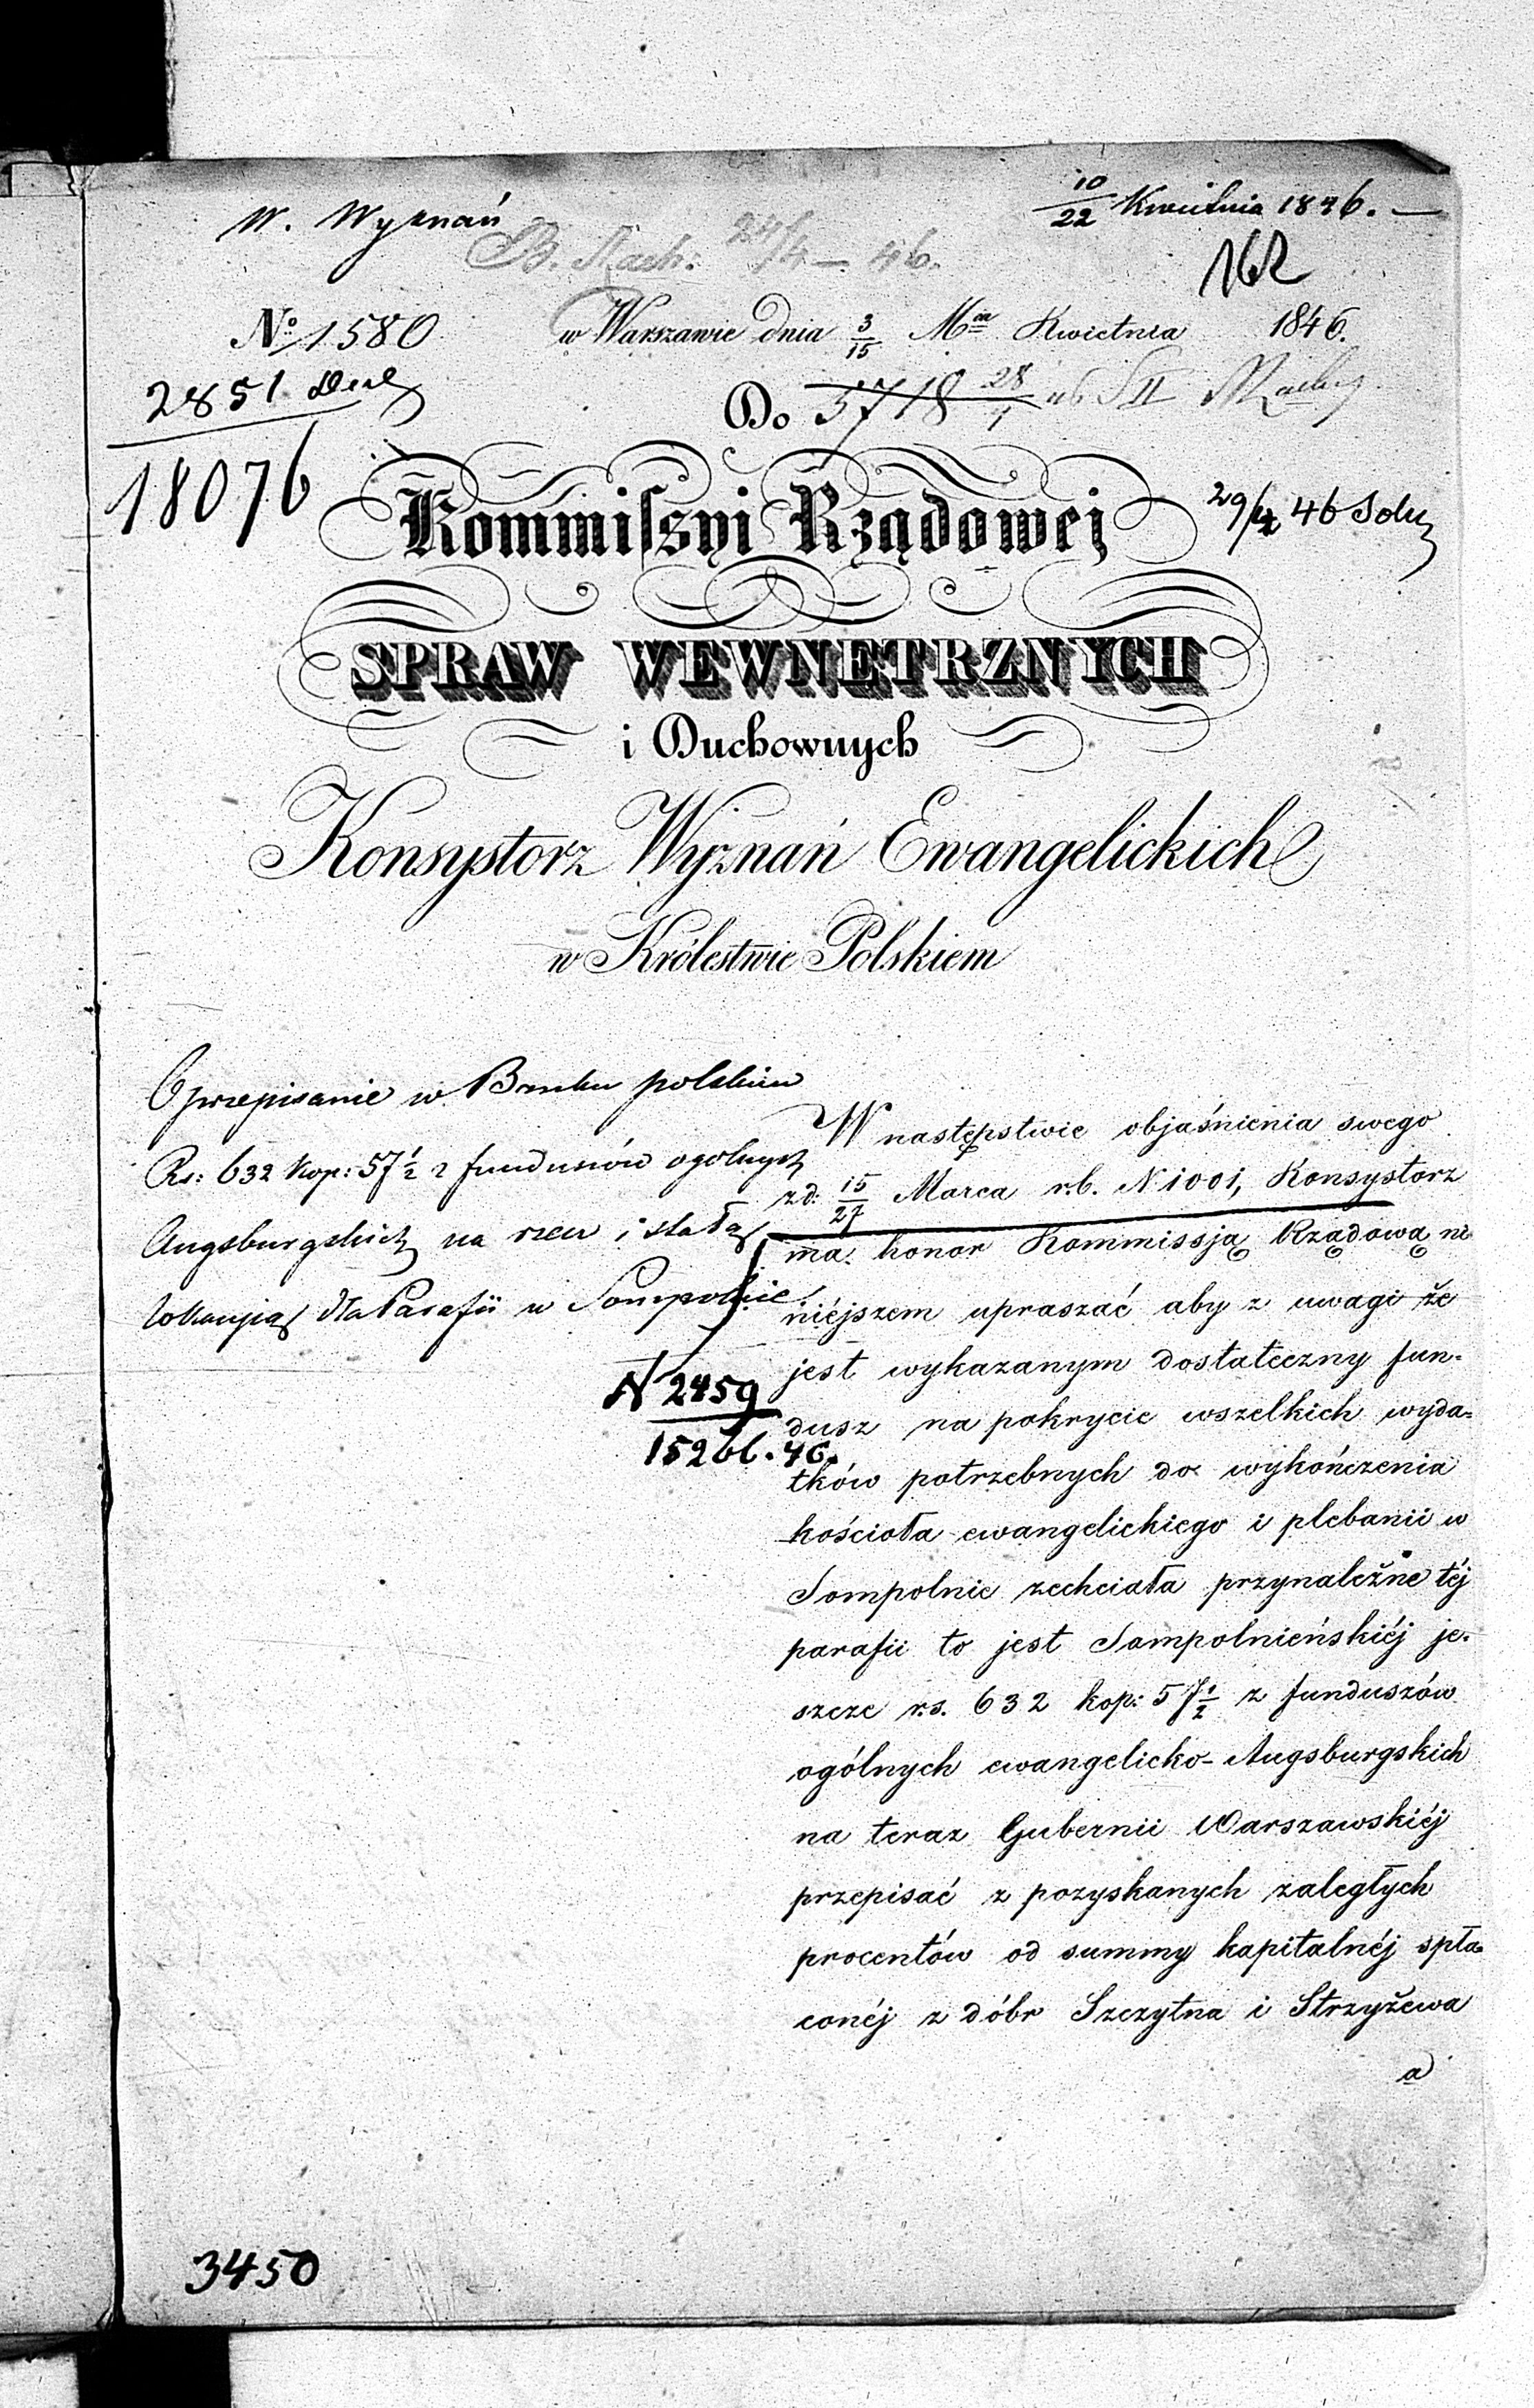 W. Wyznań
10/22 Kwietnia 1846. —
B. Rach: 24/4 — 46.
162
No 1580
w Warszawie dnia 3/15 Mca Kwietnia 1846.
2851
Do 5718 28/4 SII
18076
Kommissyi Rządowej
29/4 46
SPRAW WEWNETRZNYCH
i Duchownych
Konsystorz Wyznań Ewangelickich
w Królestwie Polskiem
O przepisanie w Banku polskim
Rs: 632 kop: 57 1/2 z funduszów ogolnych
Augsburgskich na rzecz i stałą
lokacyią dla Parafii w Sompolnie
N 2459
15266. 46.
W następstwie objaśnienia swego
z d: 15/27 Marca r.b. N 1001, Konsystorz
ma honor Kommissją Rządową ni
niéjszem upraszać aby z uwagi że
jest wykazanym dostateczny fun-
dusz na pokrycie wszelkich wyda-
tków potrzebnych do wykończenia
kościoła ewangelickiego i plebanii w
Sompolnie zechciała przynależne téj
parafii to jest Sompolnieńskiéj je-
szcze rs. 632 kop: 57 1/2 z funduszów
ogólnych ewangelicko-Augsburgskich
na teraz Gubernii Warszawskiéj
przepisać z pozyskanych zaległych
procentów od summy kapitalnéj spła-
conéj z dóbr Szczytna i Strzyżewa
a
3450